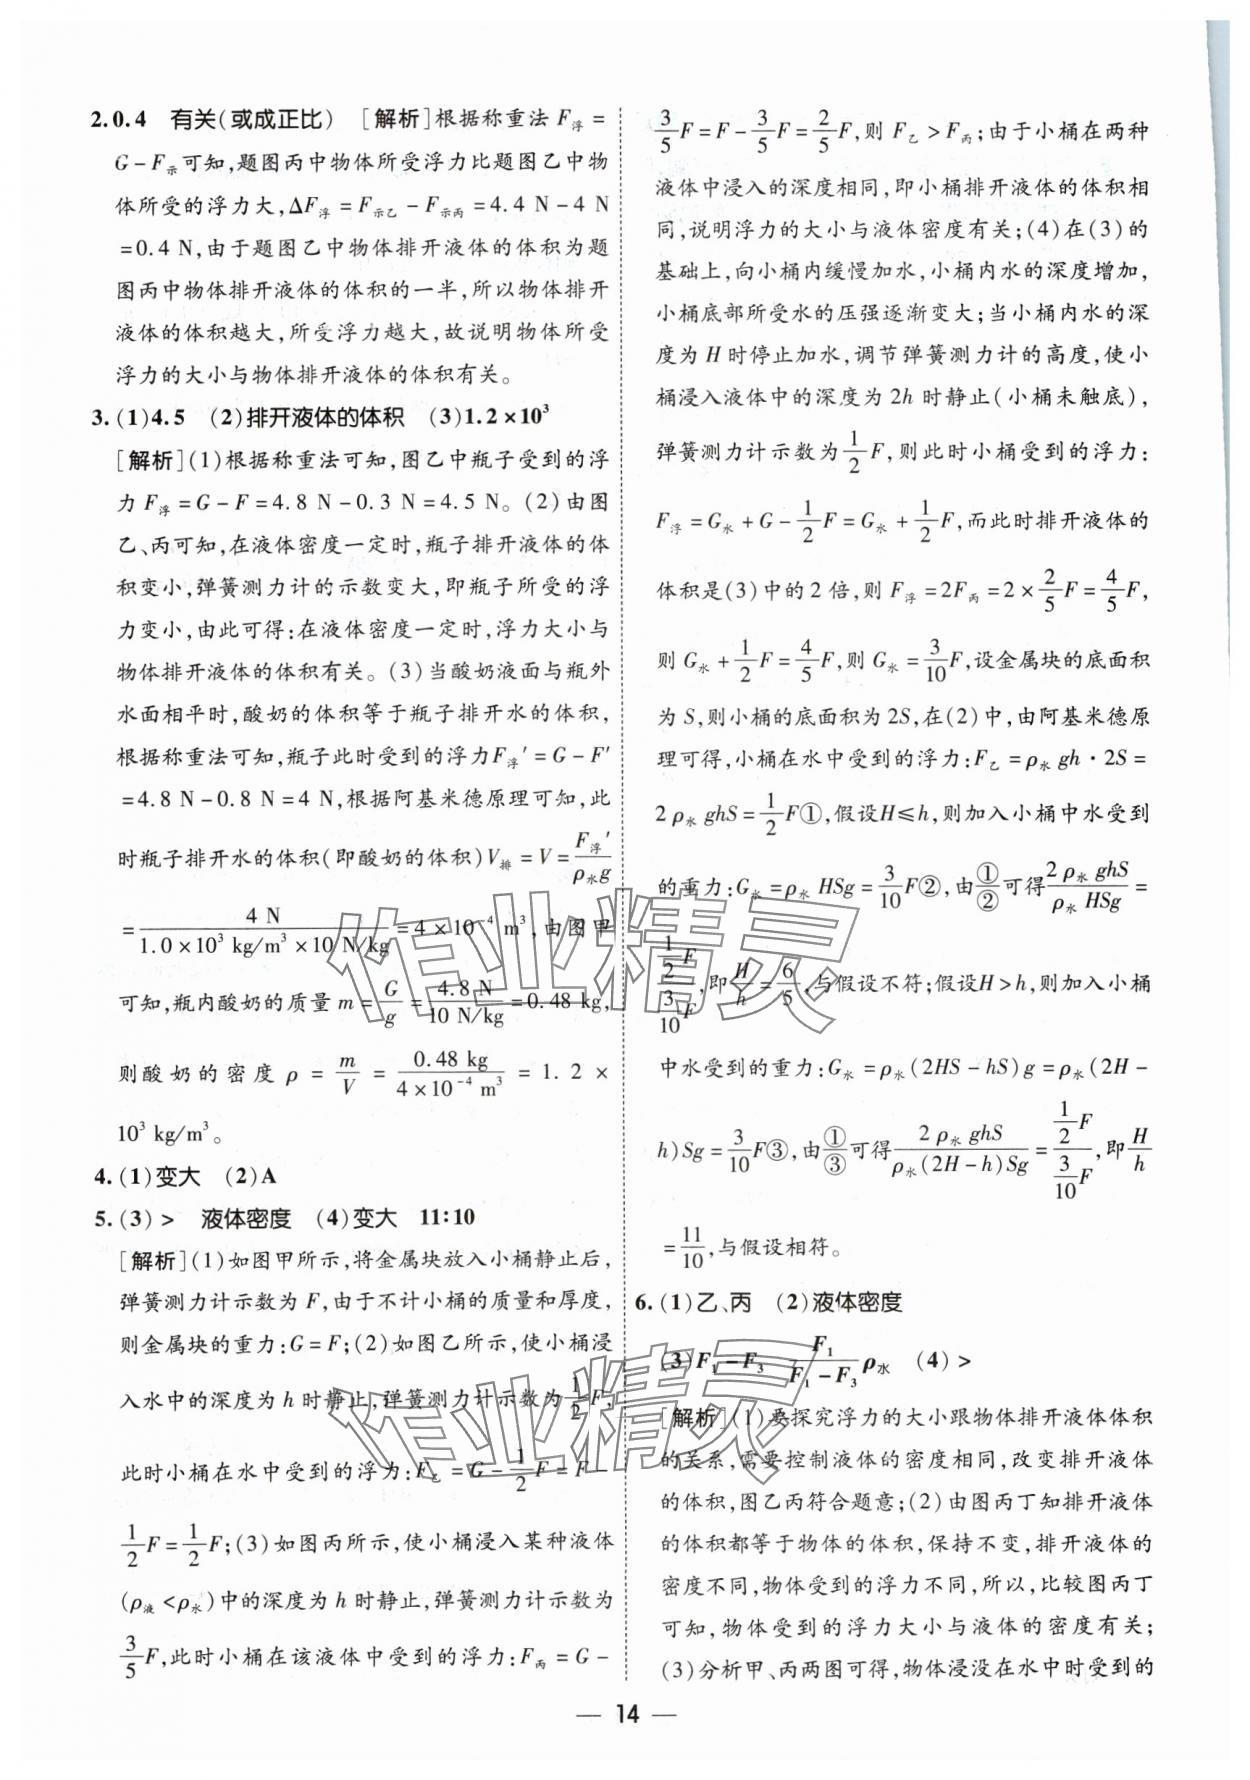 2. 0.4 有关(或成正比) [解析]根据称重法 F浮 =
G-F示可知,题图丙中物体所受浮力比题图乙中物
体所受的浮力大,ΔF浮 = F示乙 - F示丙 = 4.4 N-4 N
=0.4 N,由于题图乙中物体排开液体的体积为题
图丙中物体排开液体的体积的一半,所以物体排开
液体的体积越大,所受浮力越大,故说明物体所受
浮力的大小与物体排开液体的体积有关。
3. (1)4.5 (2)排开液体的体积 (3)1.2×10³
[解析](1)根据称重法可知,图乙中瓶子受到的浮
力 F浮 = G-F=4.8 N-0.3 N=4.5 N。(2)由图
乙、丙可知,在液体密度一定时,瓶子排开液体的体
积变小,弹簧测力计的示数变大,即瓶子所受的浮
力变小,由此可得:在液体密度一定时,浮力大小与
物体排开液体的体积有关。(3)当酸奶液面与瓶外
水面相平时,酸奶的体积等于瓶子排开水的体积,
根据称重法可知,瓶子此时受到的浮力F浮′=G-F′
=4.8 N-0.8 N=4 N,根据阿基米德原理可知,此
时瓶子排开水的体积(即酸奶的体积)V排 = V = F浮′/ρ水g
= 4 N/(1.0×10³ kg/m³×10 N/kg) = 4×10⁻⁴ m³,由图甲
可知,瓶内酸奶的质量 m = G/g = 4.8 N/10 N/kg = 0.48 kg,
则酸奶的密度 ρ = m/V = 0.48 kg/4×10⁻⁴ m³ = 1.2 ×
10³ kg/m³。
4. (1)变大 (2)A
5. (3)> 液体密度 (4)变大 11∶10
[解析](1)如图甲所示,将金属块放入小桶静止后,
弹簧测力计示数为 F,由于不计小桶的质量和厚度,
则金属块的重力:G=F;(2)如图乙所示,使小桶浸
入水中的深度为 h 时静止,弹簧测力计示数为1/2F,
此时小桶在水中受到的浮力:F乙 = G-1/2F = F-
1/2F=1/2F;(3)如图丙所示,使小桶浸入某种液体
(ρ液<ρ水)中的深度为 h 时静止,弹簧测力计示数为
3/5F,此时小桶在该液体中受到的浮力:F丙 = G-
3/5F=F-3/5F=2/5F,则 F乙>F丙;由于小桶在两种
液体中浸入的深度相同,即小桶排开液体的体积相
同,说明浮力的大小与液体密度有关;(4)在(3)的
基础上,向小桶内缓慢加水,小桶内水的深度增加,
小桶底部所受水的压强逐渐变大;当小桶内水的深
度为 H 时停止加水,调节弹簧测力计的高度,使小
桶浸入液体中的深度为 2h 时静止(小桶未触底),
弹簧测力计示数为1/2F,则此时小桶受到的浮力:
F浮 = G水+G-1/2F=G水+1/2F,而此时排开液体的
体积是(3)中的 2 倍,则 F浮=2F丙=2×2/5F=4/5F,
则 G水+1/2F=4/5F,则 G水=3/10F,设金属块的底面积
为 S,则小桶的底面积为 2S,在(2)中,由阿基米德原
理可得,小桶在水中受到的浮力:F乙=ρ水gh·2S=
2ρ水ghS=1/2F①,假设H≤h,则加入小桶中水受到
的重力:G水=ρ水HSg=3/10F②,由①/②可得2ρ水ghS/ρ水HSg=
1/2F/3/10F,即H/h=6/5,与假设不符;假设H>h,则加入小桶
中水受到的重力:G水=ρ水(2HS-hS)g=ρ水(2H-
h)Sg=3/10F③,由①/③可得2ρ水ghS/ρ水(2H-h)Sg=1/2F/3/10F,即H/h
=11/10,与假设相符。
6. (1)乙、丙 (2)液体密度
(3)F₁-F₃ F₁/(F₁-F₃)ρ水 (4)>
[解析](1)要探究浮力的大小跟物体排开液体体积
的关系,需要控制液体的密度相同,改变排开液体
的体积,图乙丙符合题意;(2)由图丙丁知排开液体
的体积都等于物体的体积,保持不变,排开液体的
密度不同,物体受到的浮力不同,所以,比较图丙丁
可知,物体受到的浮力大小与液体的密度有关;
(3)分析甲、丙两图可得,物体浸没在水中时受到的
— 14 —
作业精灵
作业精灵